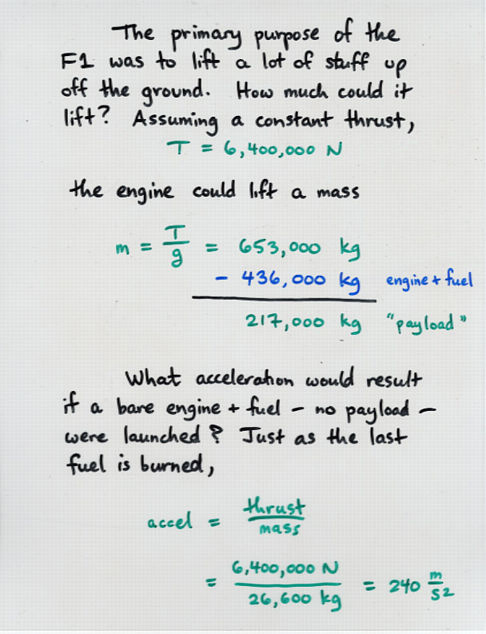 The primary purpose of the
F1 was to lift a lot of stuff up
off the ground. How much could it
lift? Assuming a constant thrust,
T = 6,400,000 N
the engine could lift a mass
m = T/g = 653,000 kg
- 436,000 kg engine + fuel
217,000 kg "payload"
What acceleration would result
if a bare engine + fuel - no payload -
were launched? Just as the last
fuel is burned,
accel = thrust/mass
= 6,400,000 N / 26,600 kg = 240 m/s2